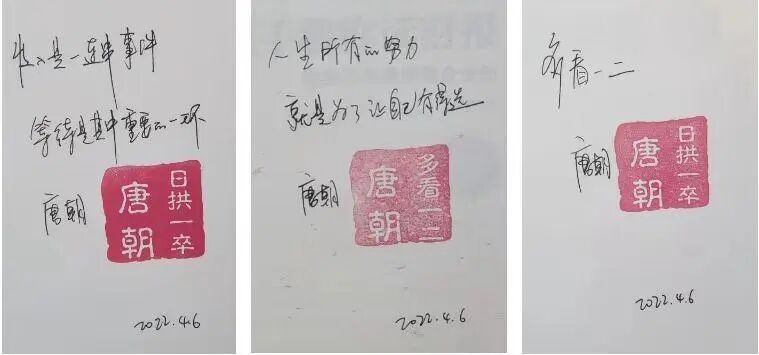 收入是一连串事件
等待是其中重要的一环
唐朝
日拱一卒
唐朝
2022.4.6
人生所有的努力
就是为了让自己有得选
唐朝
多看一二
唐朝
2022.4.6
多看一二
唐朝
日拱一卒
唐朝
2022.4.6